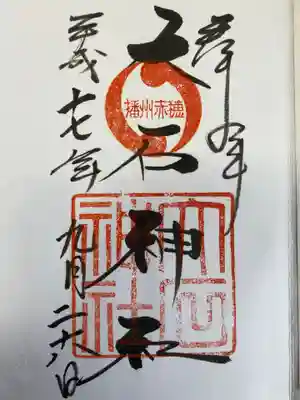 奉拝
播州赤穂
大石神社
大石神社
平成十七年九月二十八日